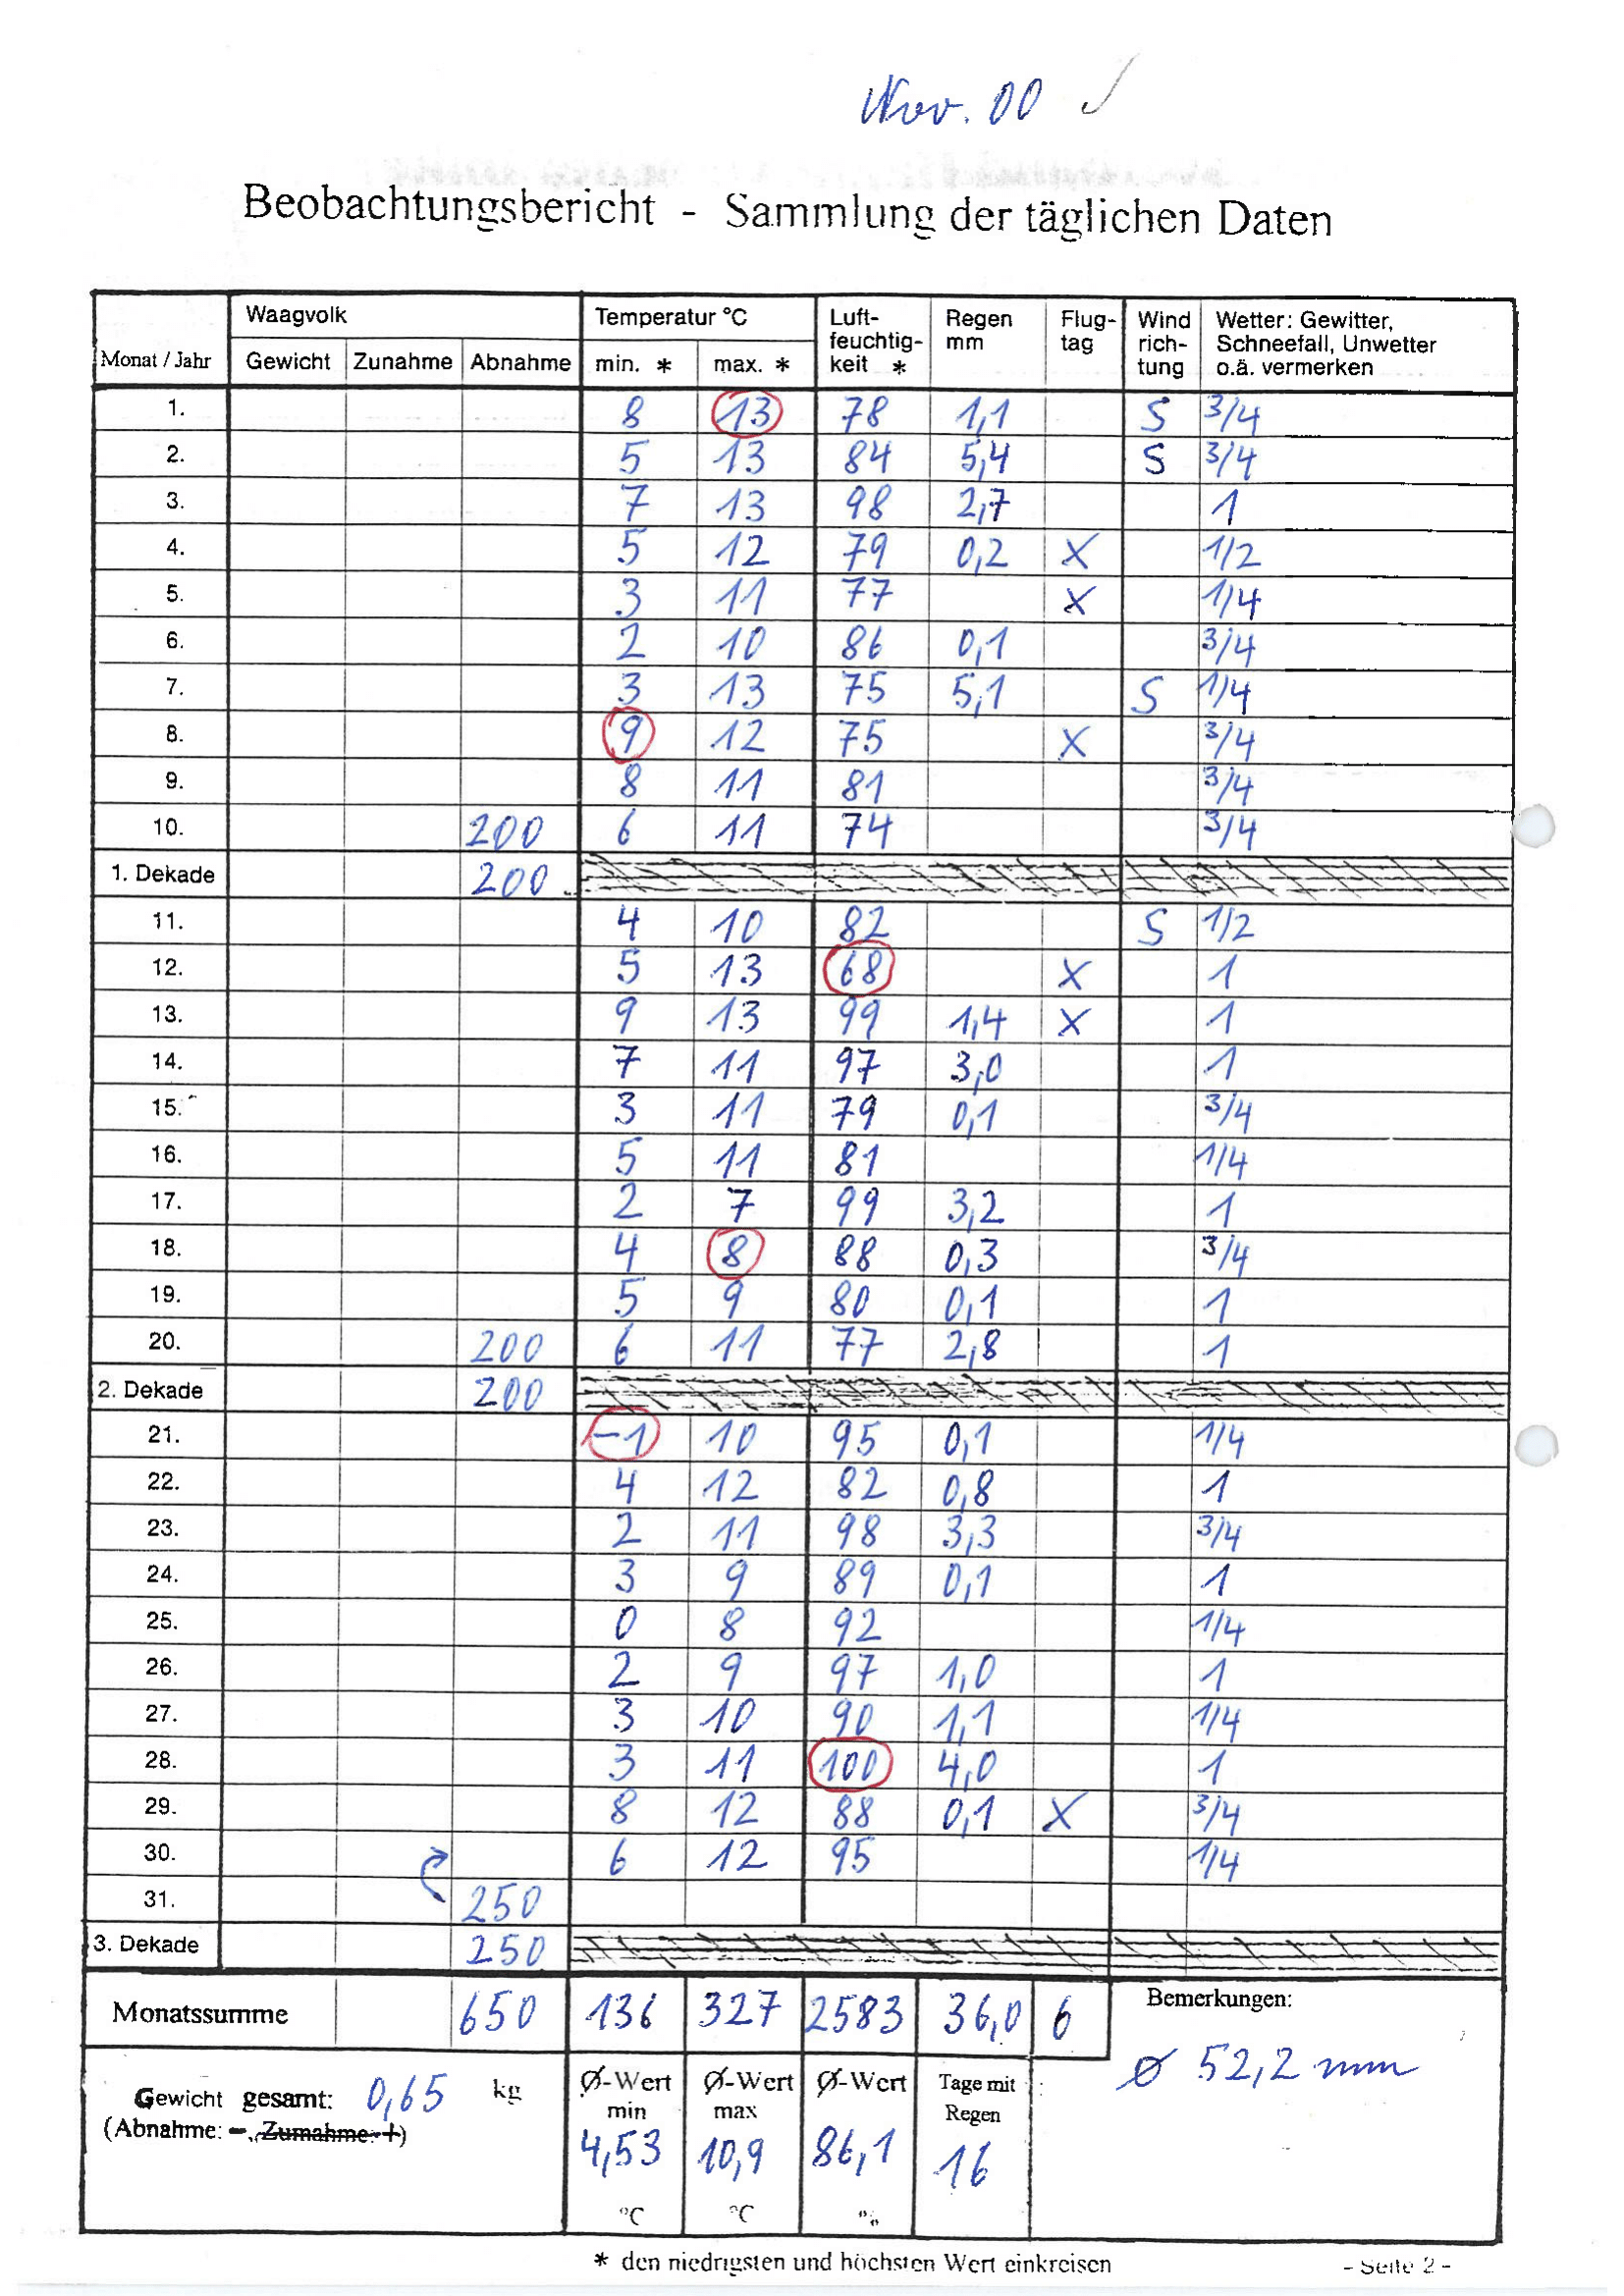 Nov. 00 ✓
Beobachtungsbericht - Sammlung der täglichen Daten
Monat / Jahr Waagvolk Temperatur °C Luft-feuchtig-keit * Regen mm Flug-tag Wind rich-tung Wetter: Gewitter, Schneefall, Unwetter o.ä. vermerken
Gewicht Zunahme Abnahme min. * max. *
1. 8 13 78 1,1 S 3/4
2. 5 13 84 5,4 S 3/4
3. 7 13 98 2,7 1
4. 5 12 79 0,2 X 1/2
5. 3 11 77 X 1/4
6. 2 10 86 0,1 3/4
7. 3 13 75 5,1 S 1/4
8. 9 12 75 X 3/4
9. 8 11 81 3/4
10. 200 6 11 74 3/4
1. Dekade 200
11. 4 10 82 S 1/2
12. 5 13 68 X 1
13. 9 13 99 1,4 X 1
14. 7 11 97 3,0 1
15. 3 11 79 0,1 3/4
16. 5 11 81 1/4
17. 2 7 99 3,2 1
18. 4 8 88 0,3 3/4
19. 5 9 80 0,1 1
20. 200 6 11 77 2,8 1
2. Dekade 200
21. -1 10 95 0,1 1/4
22. 4 12 82 0,8 1
23. 2 11 98 3,3 3/4
24. 3 9 89 0,1 1
25. 0 8 92 1/4
26. 2 9 97 1,0 1
27. 3 10 90 1,1 1/4
28. 3 11 100 4,0 1
29. 8 12 88 0,1 X 3/4
30. 6 12 95 1/4
31. 250
3. Dekade 250
Monatssumme 650 136 327 2583 36,0 6 Bemerkungen:
Ø 52,2 mm
Gewicht gesamt: 0,65 kg
(Abnahme: -, Zumahme: +)
Ø-Wert min 4,53 °C
Ø-Wert max 10,9 °C
Ø-Wert 86,1 %
Tage mit Regen 16
* den niedrigsten und höchsten Wert einkreisen
- Seite 2 -